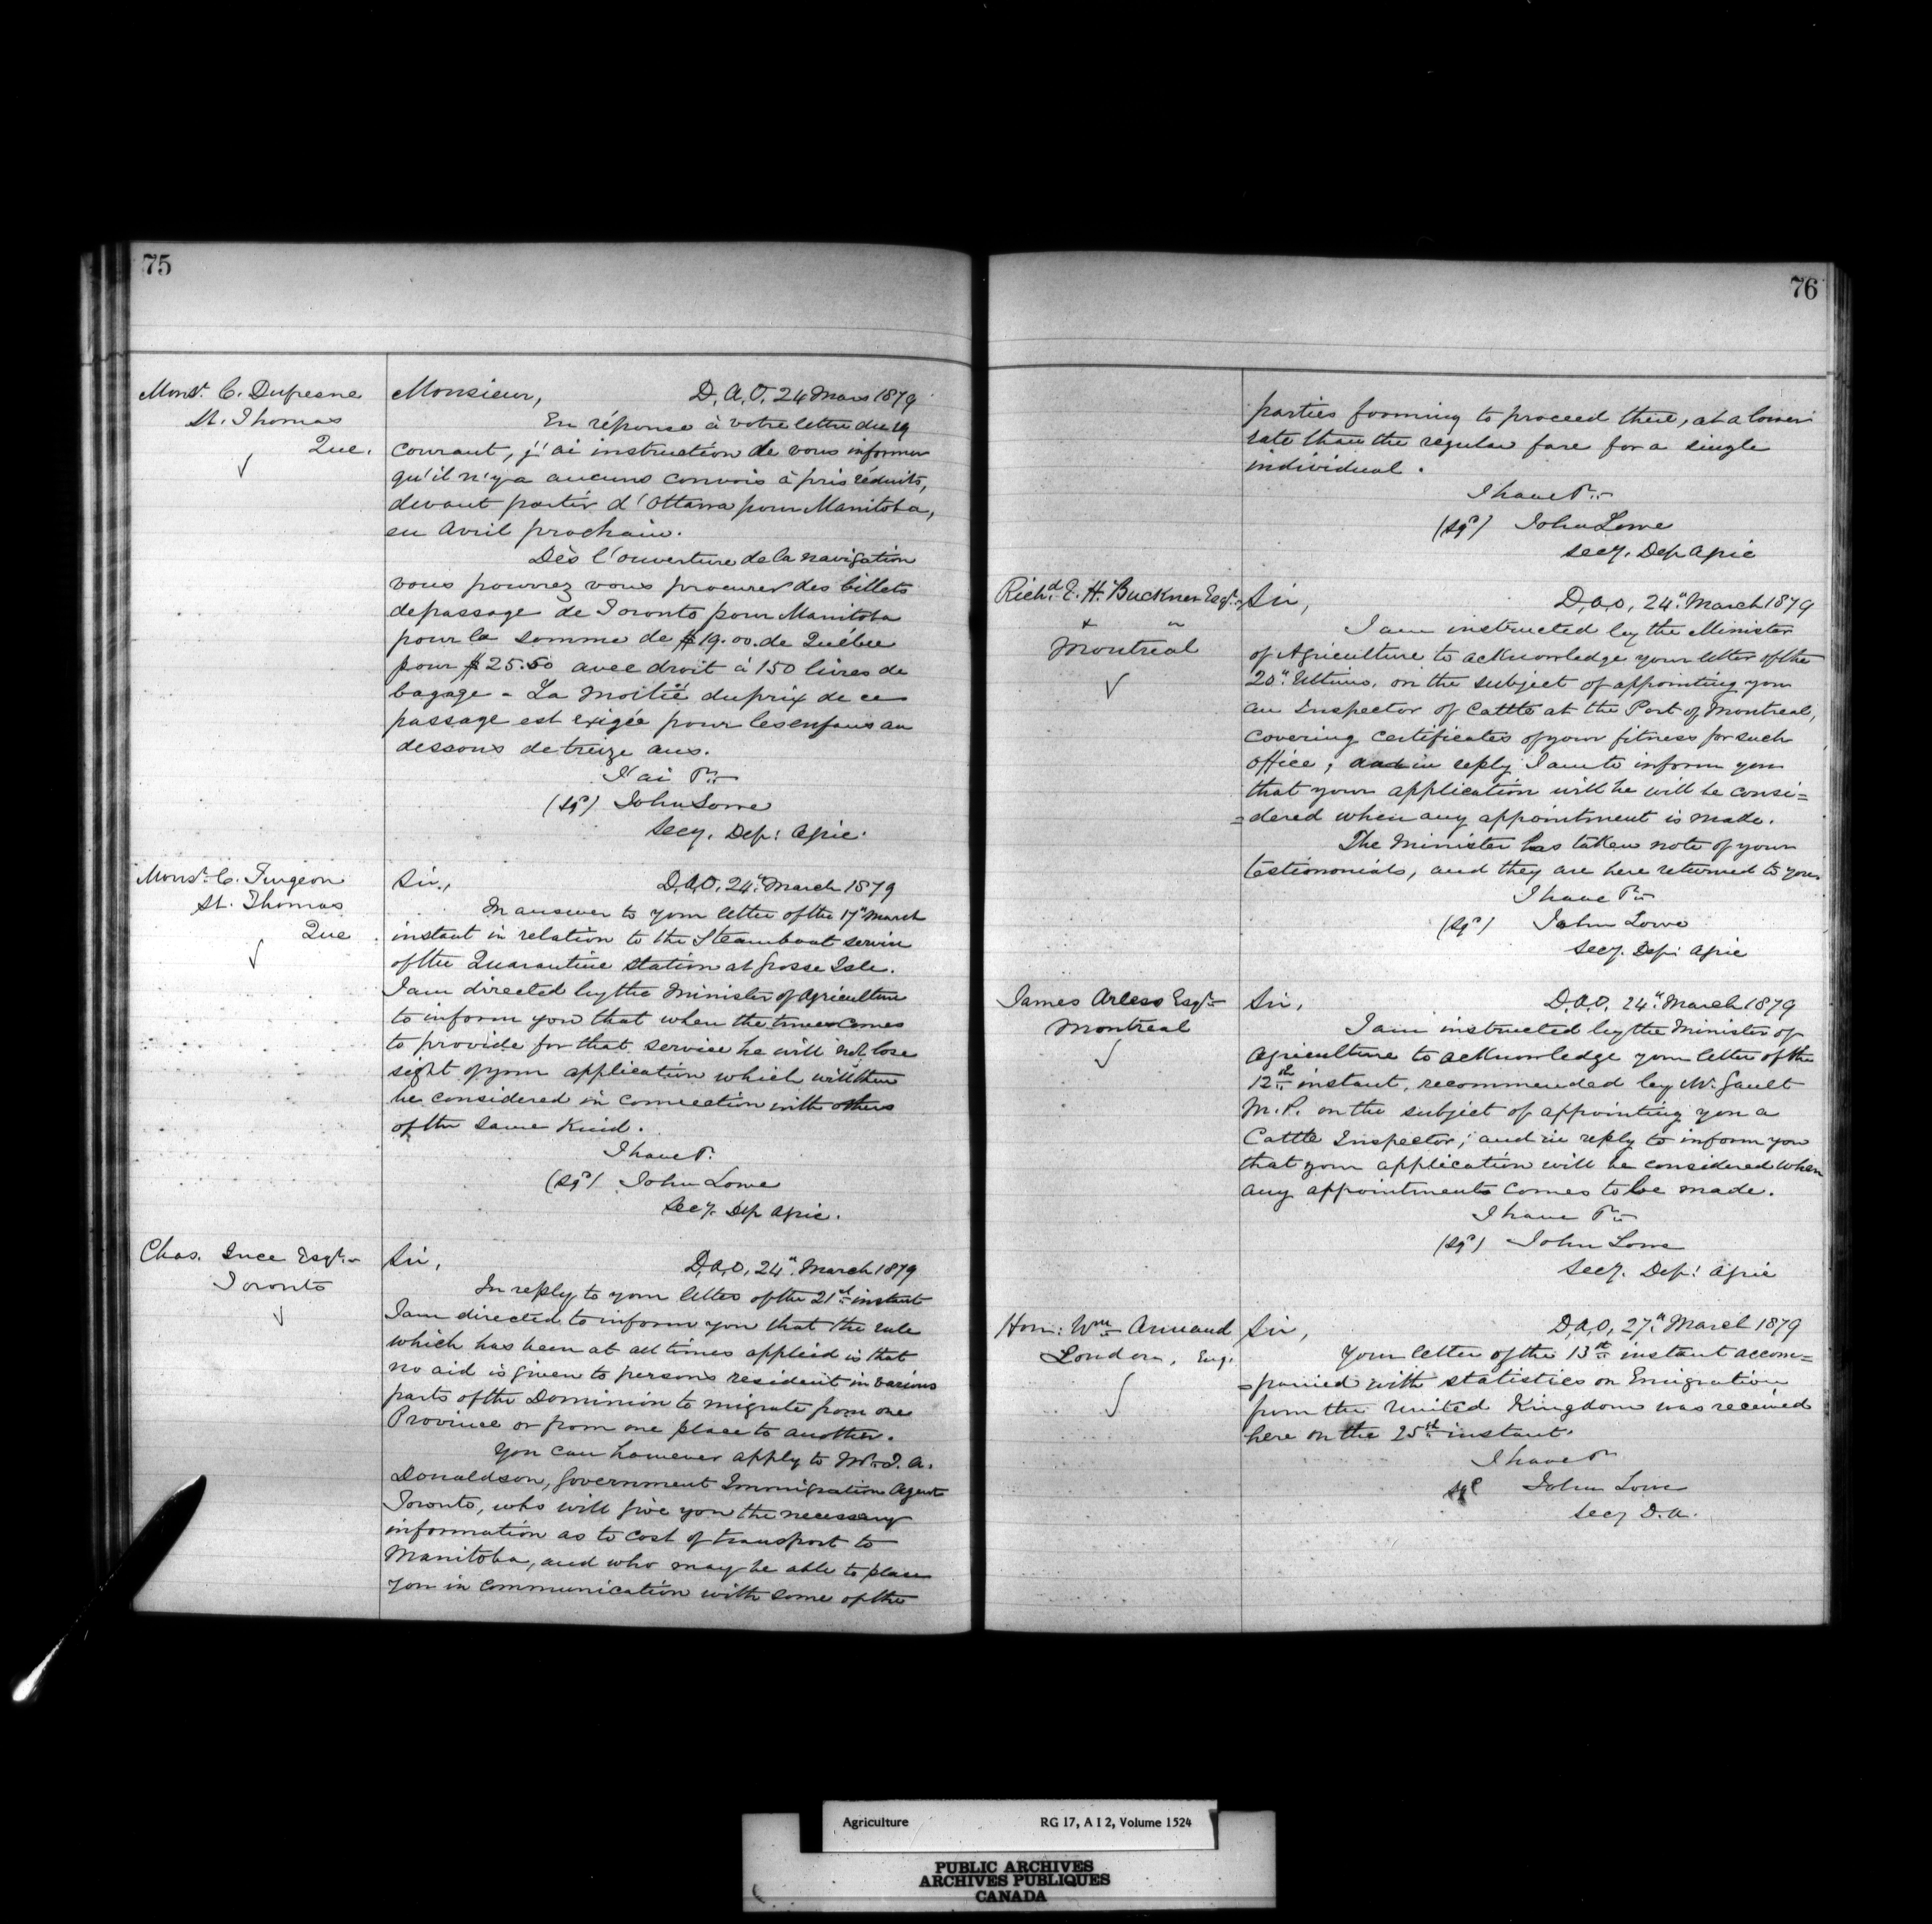 75
Monsr. C. Dufresne
St. Thomas
Que.
Monsieur, D. A. O. 24 Mars 1879
En réponse à votre lettre du 19
courant, j'ai instruction de vous informer
qu'il n'y a aucuns convois à prix réduits,
devant partir d'Ottawa pour Manitoba,
en Avril prochain.
Dès l'ouverture de la navigation
vous pourrez vous procurer des billets
de passage de Toronto pour Manitoba
pour la somme de $19.00. de Québec
pour $25.50 avec droit à 150 livres de
bagage - La moitié du prix de ce
passage est exigée pour les enfans au
dessous de treize ans.
J'ai &c
(sgd) John Lowe
Secy. Dep: Agric.
Monsr. C. Turgeon
St. Thomas
Que
Sir, D.A.O. 24th March 1879
In answer to your letter of the 17" March
instant in relation to the Steamboat service
of the Quarantine Station at Grosse Isle.
I am directed by the Minister of Agriculture
to inform you that when the time comes
to provide for that service he will not lose
sight of your application which will then
be considered in connection with others
of the same kind.
I have &.
(sgd) John Lowe
Secy. Dep Agric.
Chas. Ince Esqr.
Toronto
Sir, D.A.O. 24". March 1879
In reply to your letter of the 21st instant
I am directed to inform you that the rule
which has been at all times applied is that
no aid is given to persons resident in various
parts of the Dominion to migrate from one
Province or from one place to another.
You can however apply to Mr. J. A.
Donaldson, Government Immigration Agent
Toronto, who will give you the necessary
information as to cost of transport to
Manitoba, and who may be able to place
you in communication with some of the
76
parties forming to proceed there, at a lower
rate than the regular fare for a single
individual.
I have &c
(sgd) John Lowe
Secy. Dep Agric
Richd. E. H. Buckner Esqr.
Montreal
Sir, D.A.O, 24". March 1879
I am instructed by the Minister
of Agriculture to acknowledge your letter of the
20". Ultimo, on the subject of appointing you
an Inspector of Cattle at the Port of Montreal,
covering certificates of your fitness for such
office; and in reply I am to inform you
that your application will be will be consi=
=dered when any appointment is made.
The Minister has taken note of your
testimonials, and they are here returned to you.
I have &c
(sgd) John Lowe
Secy. Dep: Agric
James Arless Esqr.
Montreal
Sir, D.A.O. 24". March 1879
I am instructed by the Minister of
Agriculture to acknowledge your letter of the
12th instant, recommended by Mr. Gault
M.P. on the subject of appointing you a
Cattle Inspector; and in reply to inform you
that your application will be considered when
any appointments comes to be made.
I have &c
(sgd) John Lowe
Secy. Dep: Agric
Hon: Wm. Annand
London, Eng.
Sir, D.A.O, 27". March 1879
Your letter of the 13th instant accom=
=panied with statistics on Emigration
from the United Kingdom was received
here on the 25th instant.
I have &
sgd John Lowe
Secy D.A.
Agriculture RG 17, A I 2, Volume 1524
PUBLIC ARCHIVES
ARCHIVES PUBLIQUES
CANADA